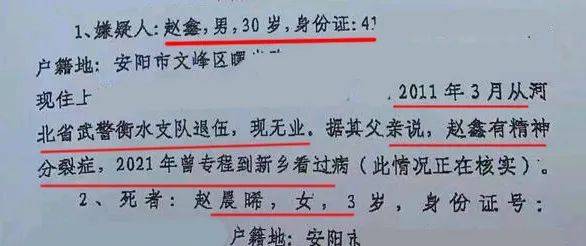 1、嫌疑人:赵鑫,男,30岁,身份证:41
户籍地:安阳市文峰区曙
现住上 2011年3月从河
北省武警衡水支队退伍,现无业。据其父亲说,赵鑫有精神
分裂症,2021年曾专程到新乡看过病(此情况正在核实)。
2、死者:赵晨晞,女,3岁,身份证号:
户籍地:安阳市